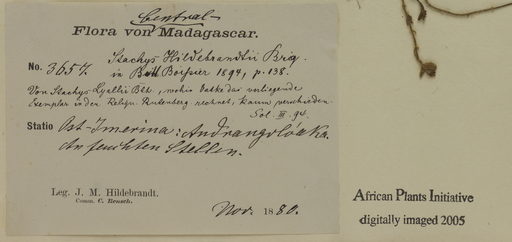 Central-
Flora von Madagascar.
No. 3657. Stachys Hildebrandtii Briq.
in Bull Boissier 1894, p. 138.
Von Stachys Lyallii Bth., wohin Vatke das vorliegende
Exemplar in den Reliqu. Rutenberg rechnet, kaum verschieden.
Sol. III. 94.
Statio Ost-Imerina: Andrangolóaka.
An feuchten Stellen.
Leg. J. M. Hildebrandt.
Comm. C. Rensch.
Nov. 1880.
African Plants Initiative
digitally imaged 2005